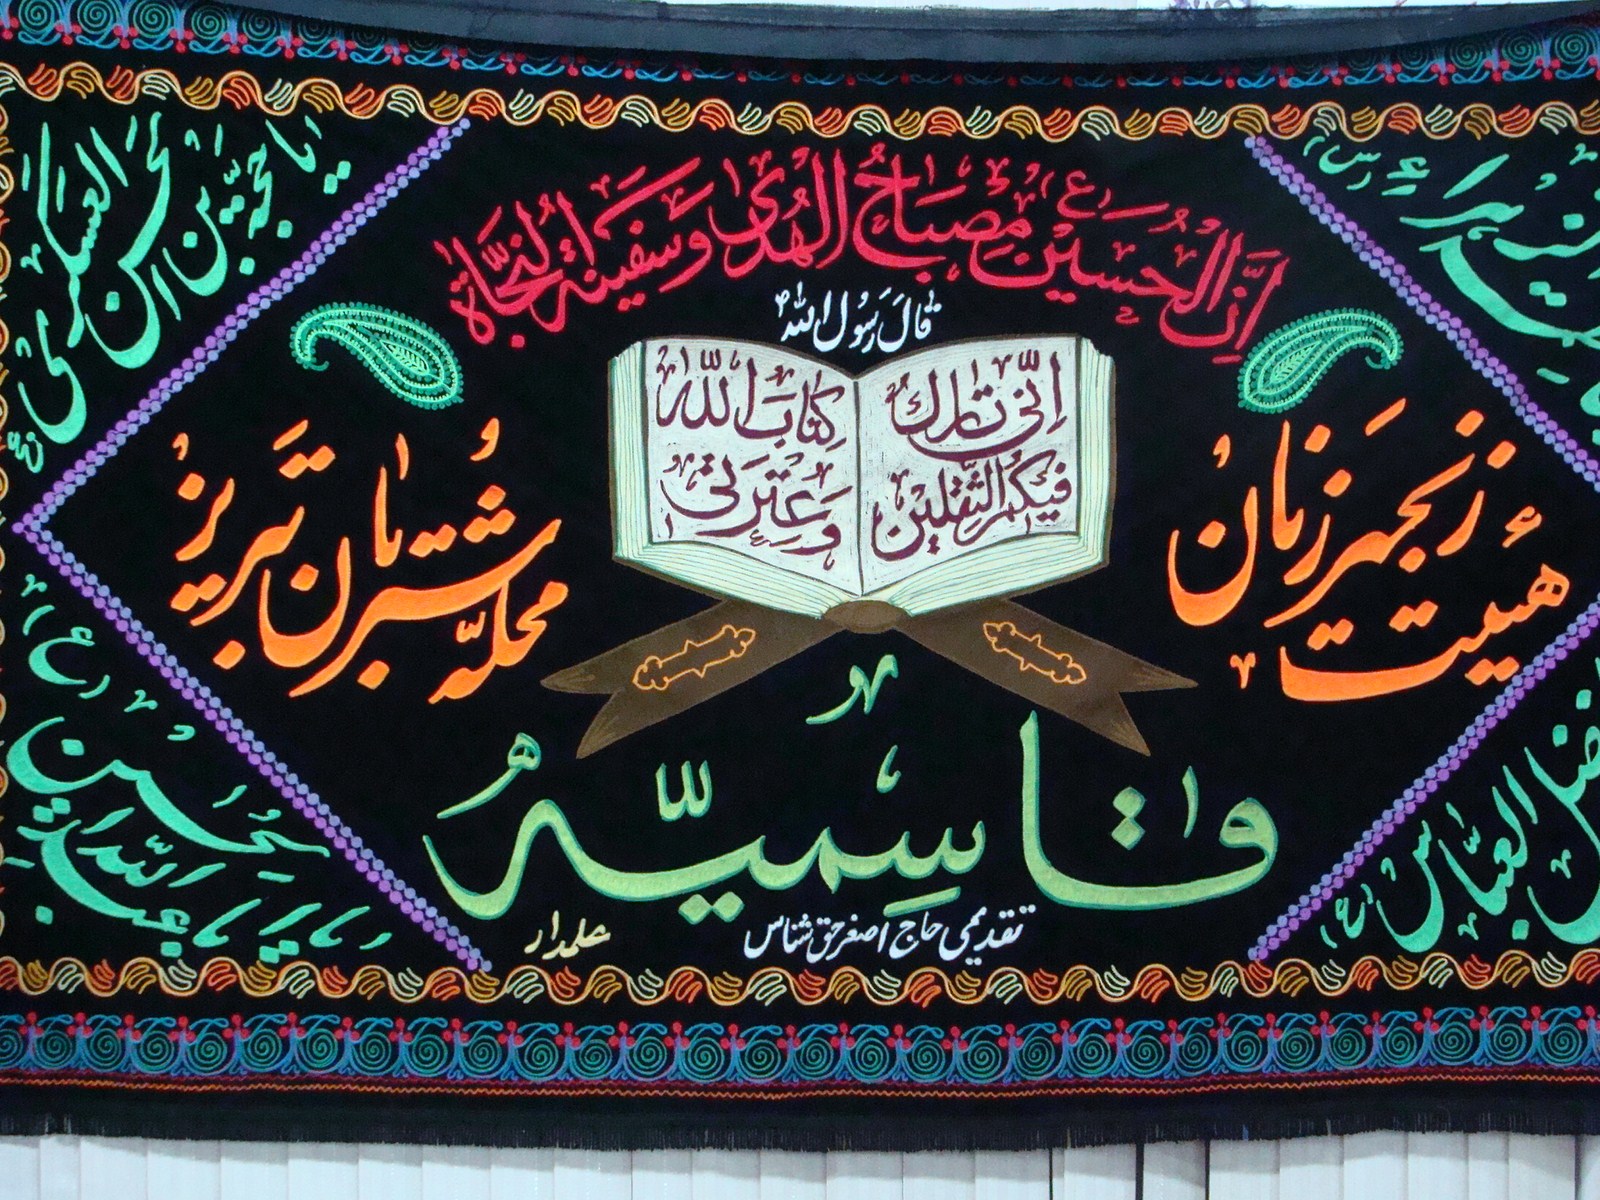 اِنَّ الْحُسَین مِصباحُ الهُدی وَ سَفینَةُ النَّجاة
قالَ رَسُول الله
اِنّی تارِکُ
فیکُمُ الثَّقَلَین
کِتابَ اللّه
وَ عِترَتی
هیئت زنجیر زنان
قاسِمیّه
محله شتربان تبریز
تقدیمی حاج اصغر حق شناس
علمدار
زهرا
یا حجة بن الحسن العسکری
یا ابا عبد الله الحُسین
فضل العباس